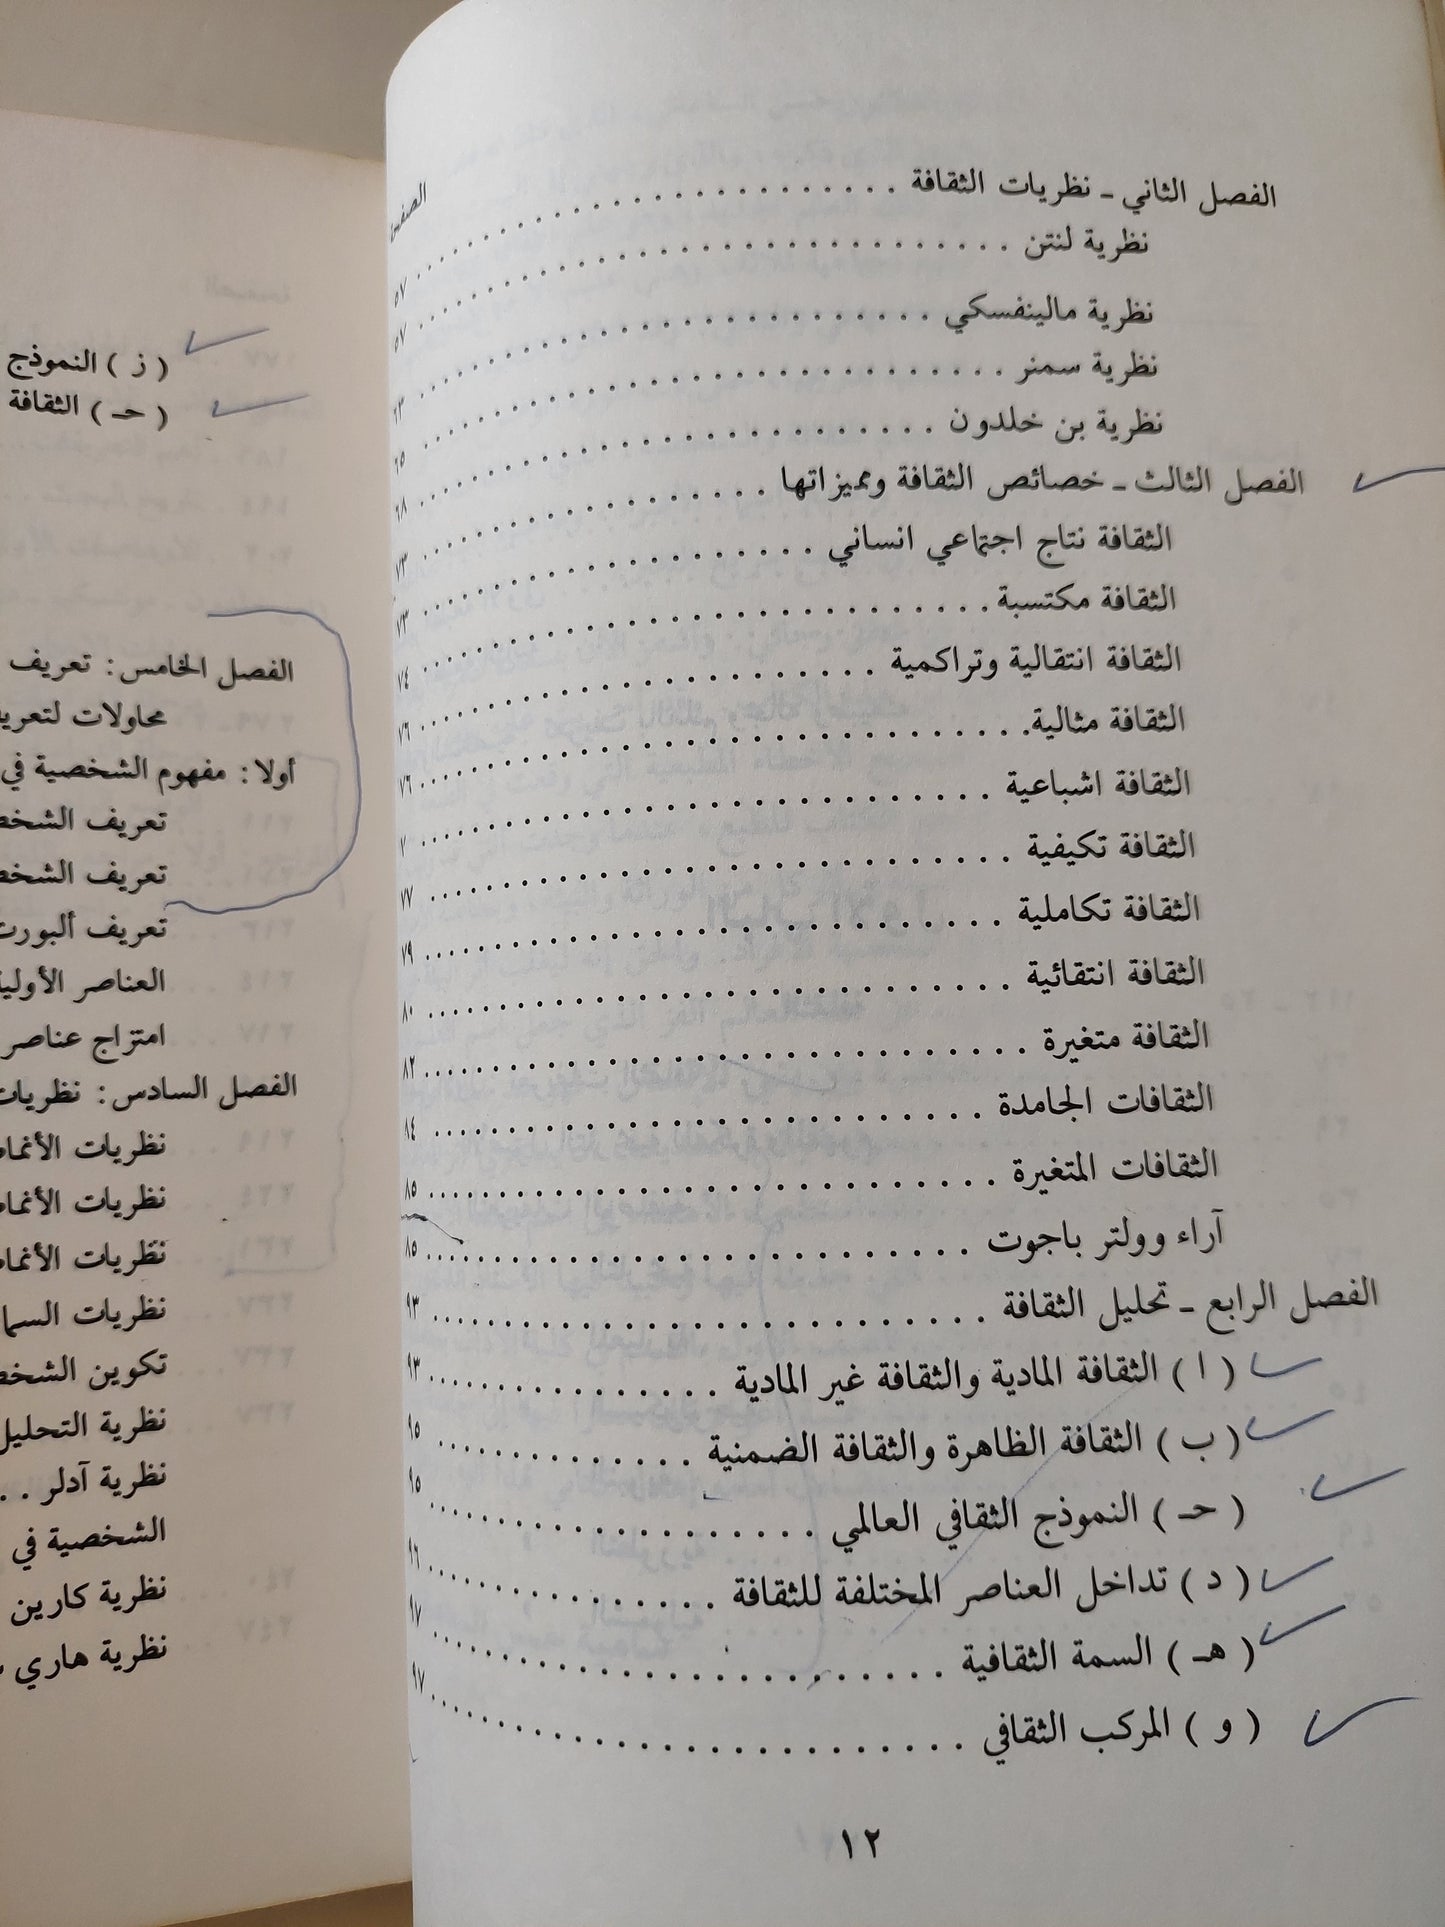 الفصل الثاني ـ نظريات الثقافة . . . . . . . . . . ٥٧
نظرية لنتن . . . . . . . . . . ٥٧
نظرية مالينفسكي . . . . . . . . . . ٦٣
نظرية سمنر . . . . . . . . . . ٦٥
نظرية بن خلدون . . . . . . . . . . ٦٨
الفصل الثالث ـ خصائص الثقافة ومميزاتها . . . . . . . . . . ٧٣
الثقافة نتاج اجتماعي انساني . . . . . . . . . . ٧٣
الثقافة مكتسبة . . . . . . . . . . ٧٤
الثقافة انتقالية وتراكمية . . . . . . . . . . ٧٦
الثقافة مثالية . . . . . . . . . . ٧٦
الثقافة اشباعية . . . . . . . . . .
الثقافة تكيفية . . . . . . . . . . ٧٧
الثقافة تكاملية . . . . . . . . . . ٧٩
الثقافة انتقائية . . . . . . . . . . ٨٠
الثقافة متغيرة . . . . . . . . . . ٨٢
الثقافات الجامدة . . . . . . . . . . ٨٤
الثقافات المتغيرة . . . . . . . . . . ٨٥
آراء وولتر باجوت . . . . . . . . . . ٨٥
الفصل الرابع ـ تحليل الثقافة . . . . . . . . . . ٩٣
( ا ) الثقافة المادية والثقافة غير المادية . . . . . . . . . . ٩٣
( ب ) الثقافة الظاهرة والثقافة الضمنية . . . . . . . . . . ٩٥
( حـ ) النموذج الثقافي العالمي . . . . . . . . . . ٩٥
( د ) تداخل العناصر المختلفة للثقافة . . . . . . . . . . ٩٦
( هـ ) السمة الثقافية . . . . . . . . . . ٩٧
( و ) المركب الثقافي . . . . . . . . . . ٩٧
١٢
( ز ) النموذج
( حـ ) الثقافة
الفصل الخامس: تعريف
محاولات
أولا: مفهوم الشخصية في
تعريف
تعريف
تعريف
العناصر
امتزاج عناصر
الفصل السادس: نظريات
نظريات
نظريات
نظريات
نظريات
تكوين
نظرية
نظرية آدلر . .
الشخصية في
نظرية كارين
نظرية هاري